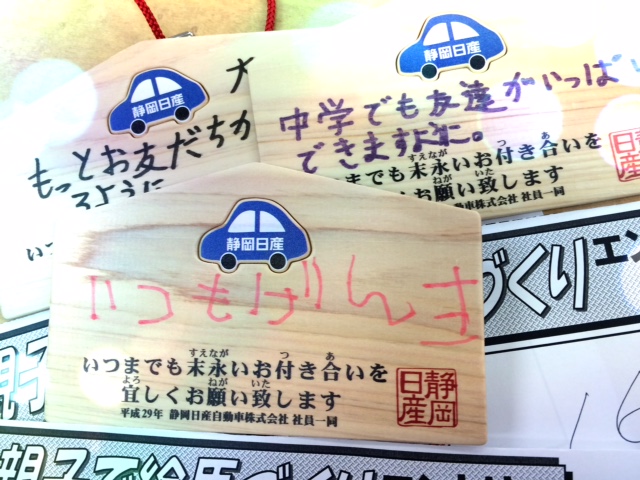 静岡日産
もっとお友だちが
るように
いつ
静岡日産
中学でも友達がいっぱい
できますように。
までも末永いお付き合いを
すえなが つ あ
しくお願い致します
ねが いた
自動車株式会社 社員一同
静岡
日産
静岡日産
いつもげんき
すえなが つ あ
いつまでも末永いお付き合いを
よろ ねが いた
宜しくお願い致します
平成29年 静岡日産自動車株式会社 社員一同
静岡
日産
づくりエン
親子
16
親子で絵馬づくりエントリー